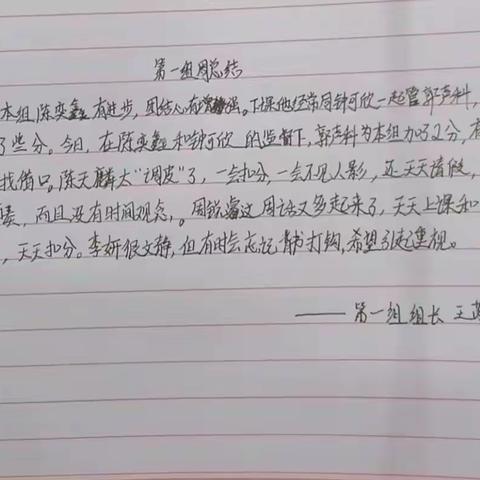 第一组周总结
本组陈奕鑫有进步,团结心有增强。下课他经常同钟可欣一起管郭声科,
了些分。今日,在陈奕鑫和钟可欣的监督下,郭声科为本组加了2分,有
找借口。陈天麟太“调皮”了,一会扣分,一会不见人影,还天天请假,
而且没有时间观念,。周锐睿这周话又多起来了,天天上课和
,天天扣分。李妍很文静,但有时会忘记背书打钩,希望引起重视。
——第一组组长 王